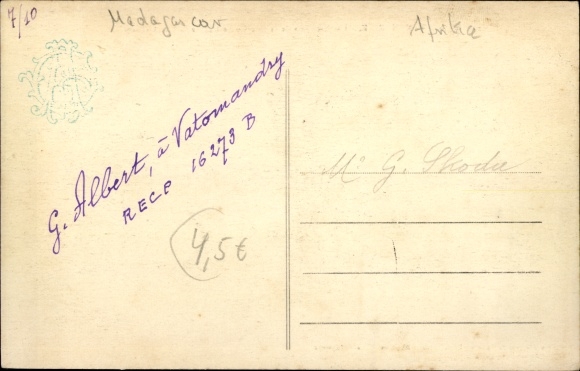 7/10
Madagascar
Afrika
G. Albert, à Vatomandry
RECP 16273 B
4,5€
Mr G.